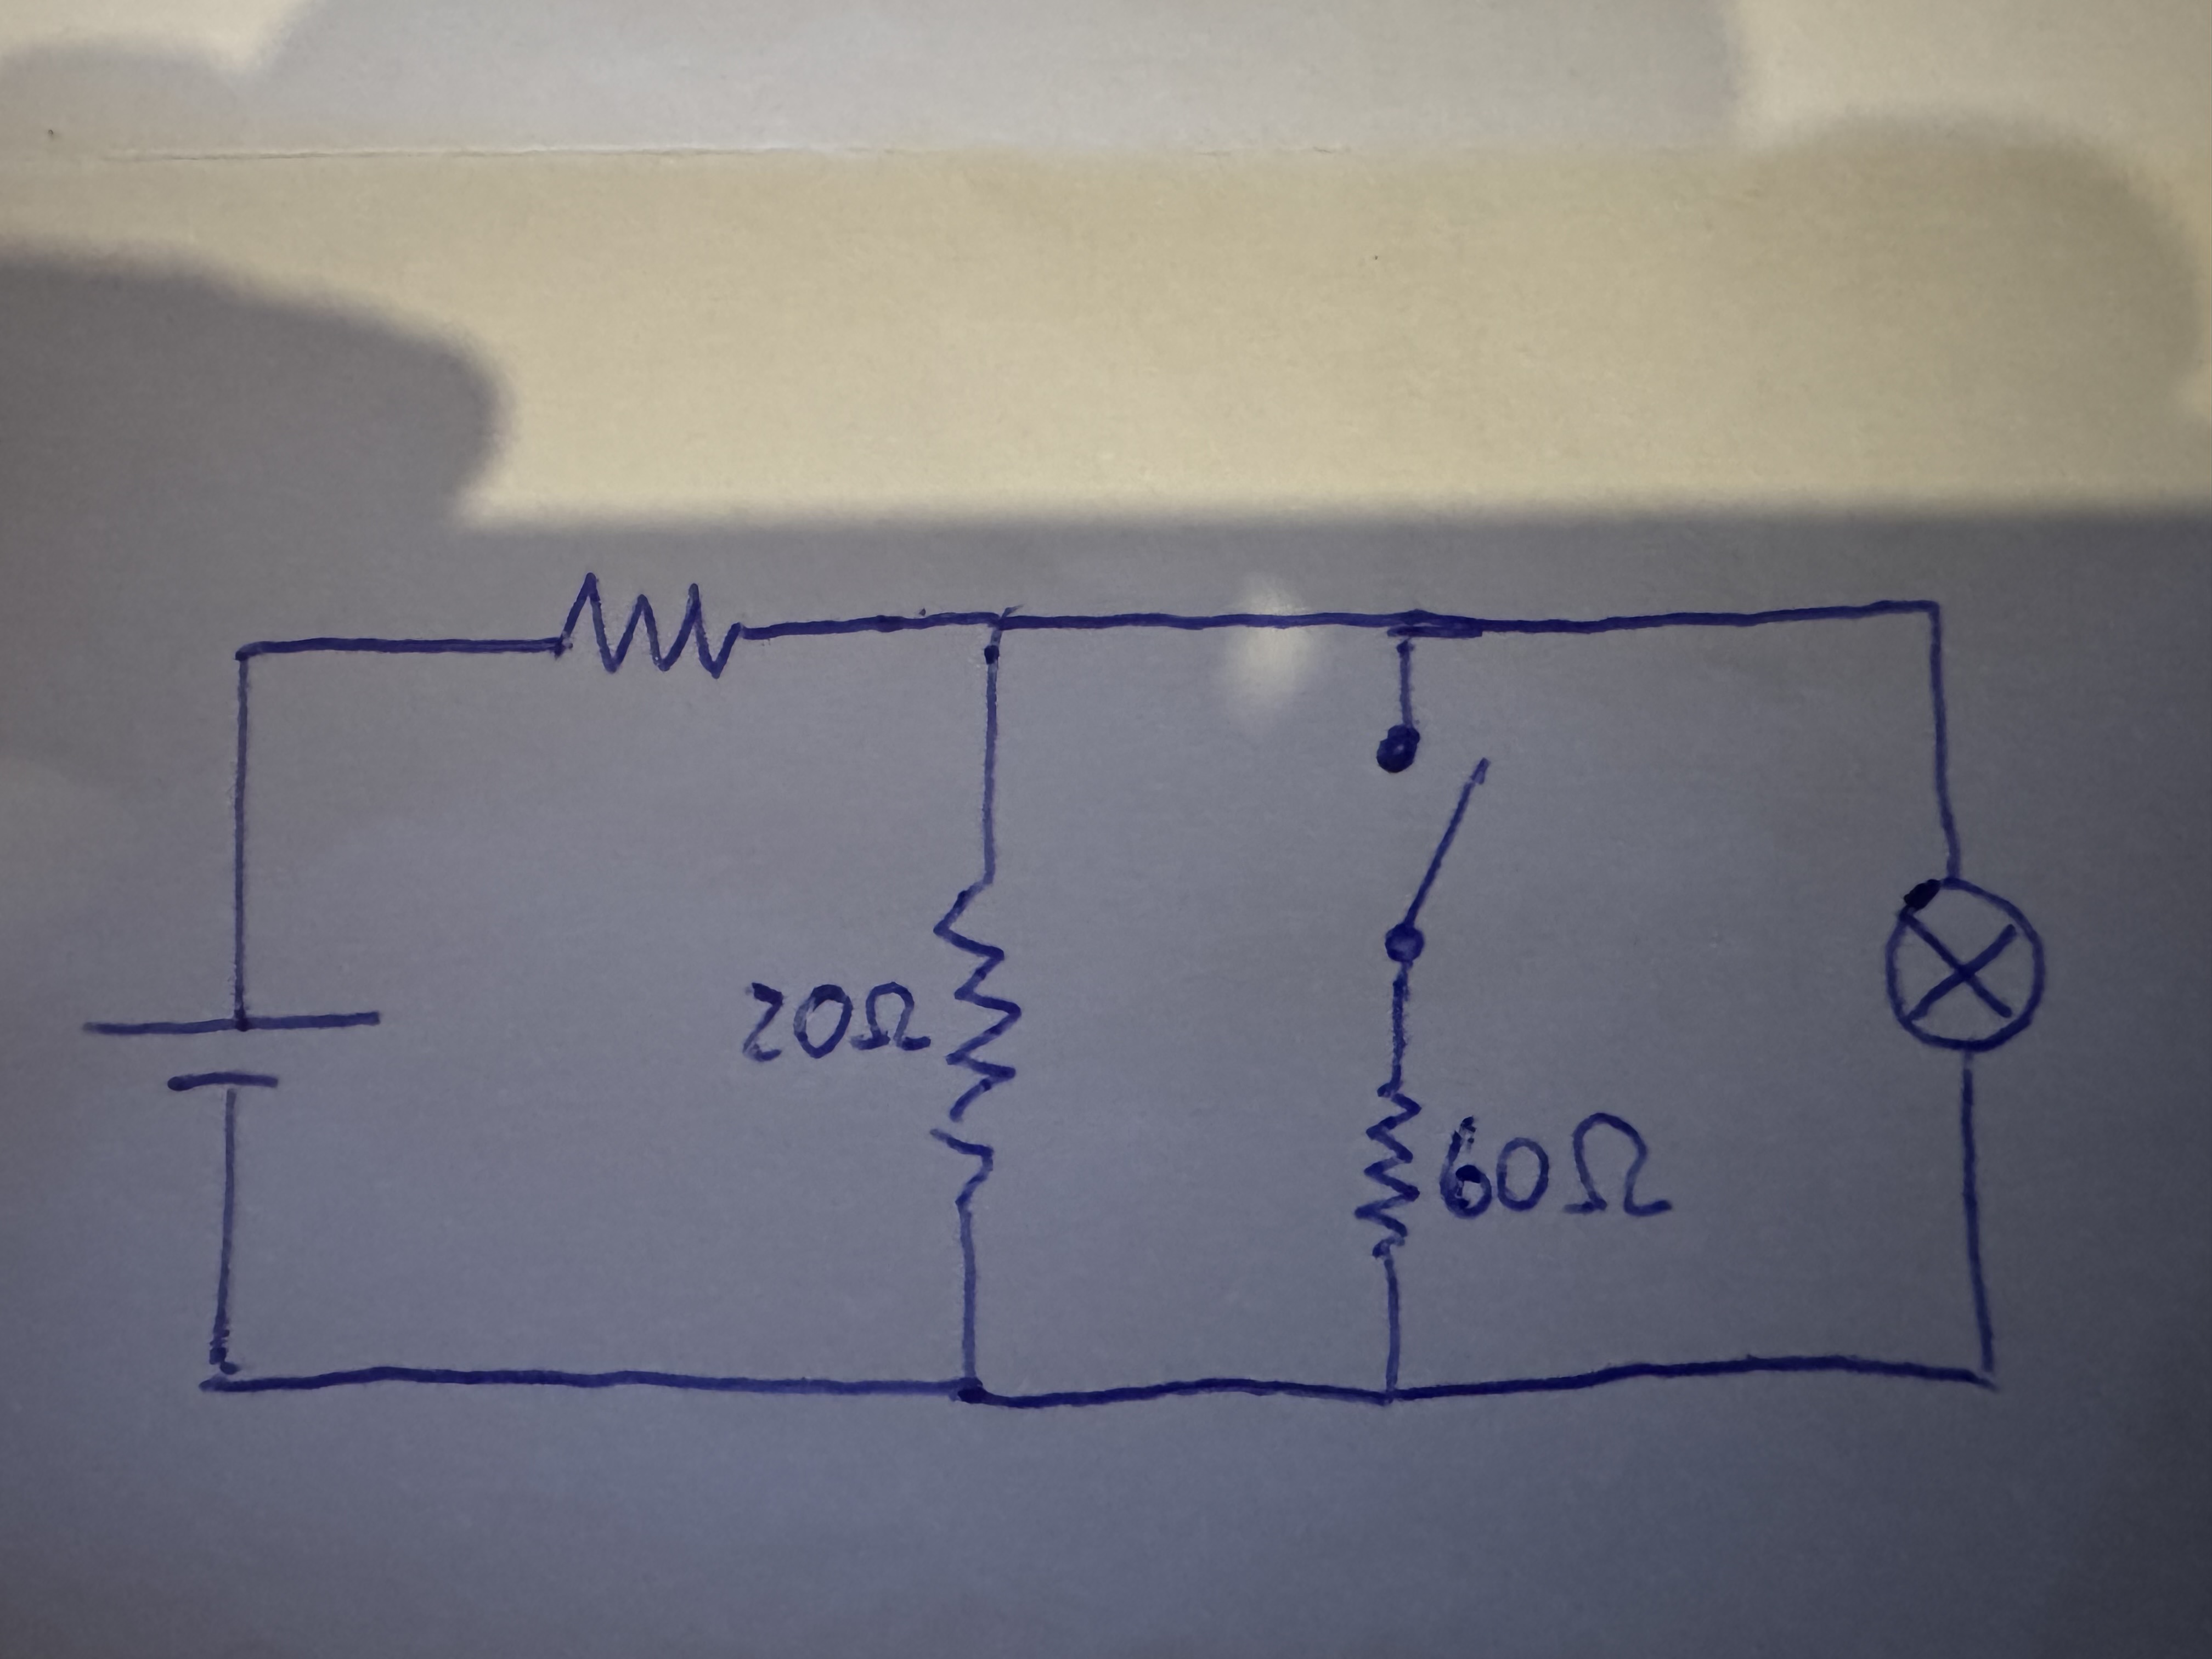 20Ω
60Ω